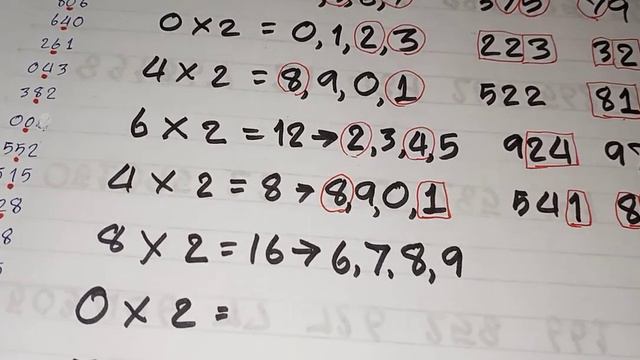 806
640
261
043
382
00
552
515
28
8
0 × 2 = 0, 1, 2, 3
4 × 2 = 8, 9, 0, 1
6 × 2 = 12 → 2, 3, 4, 5
4 × 2 = 8 → 8, 9, 0, 1
8 × 2 = 16 → 6, 7, 8, 9
0 × 2 =
575 79
223 32
522 81
924 9
541 8